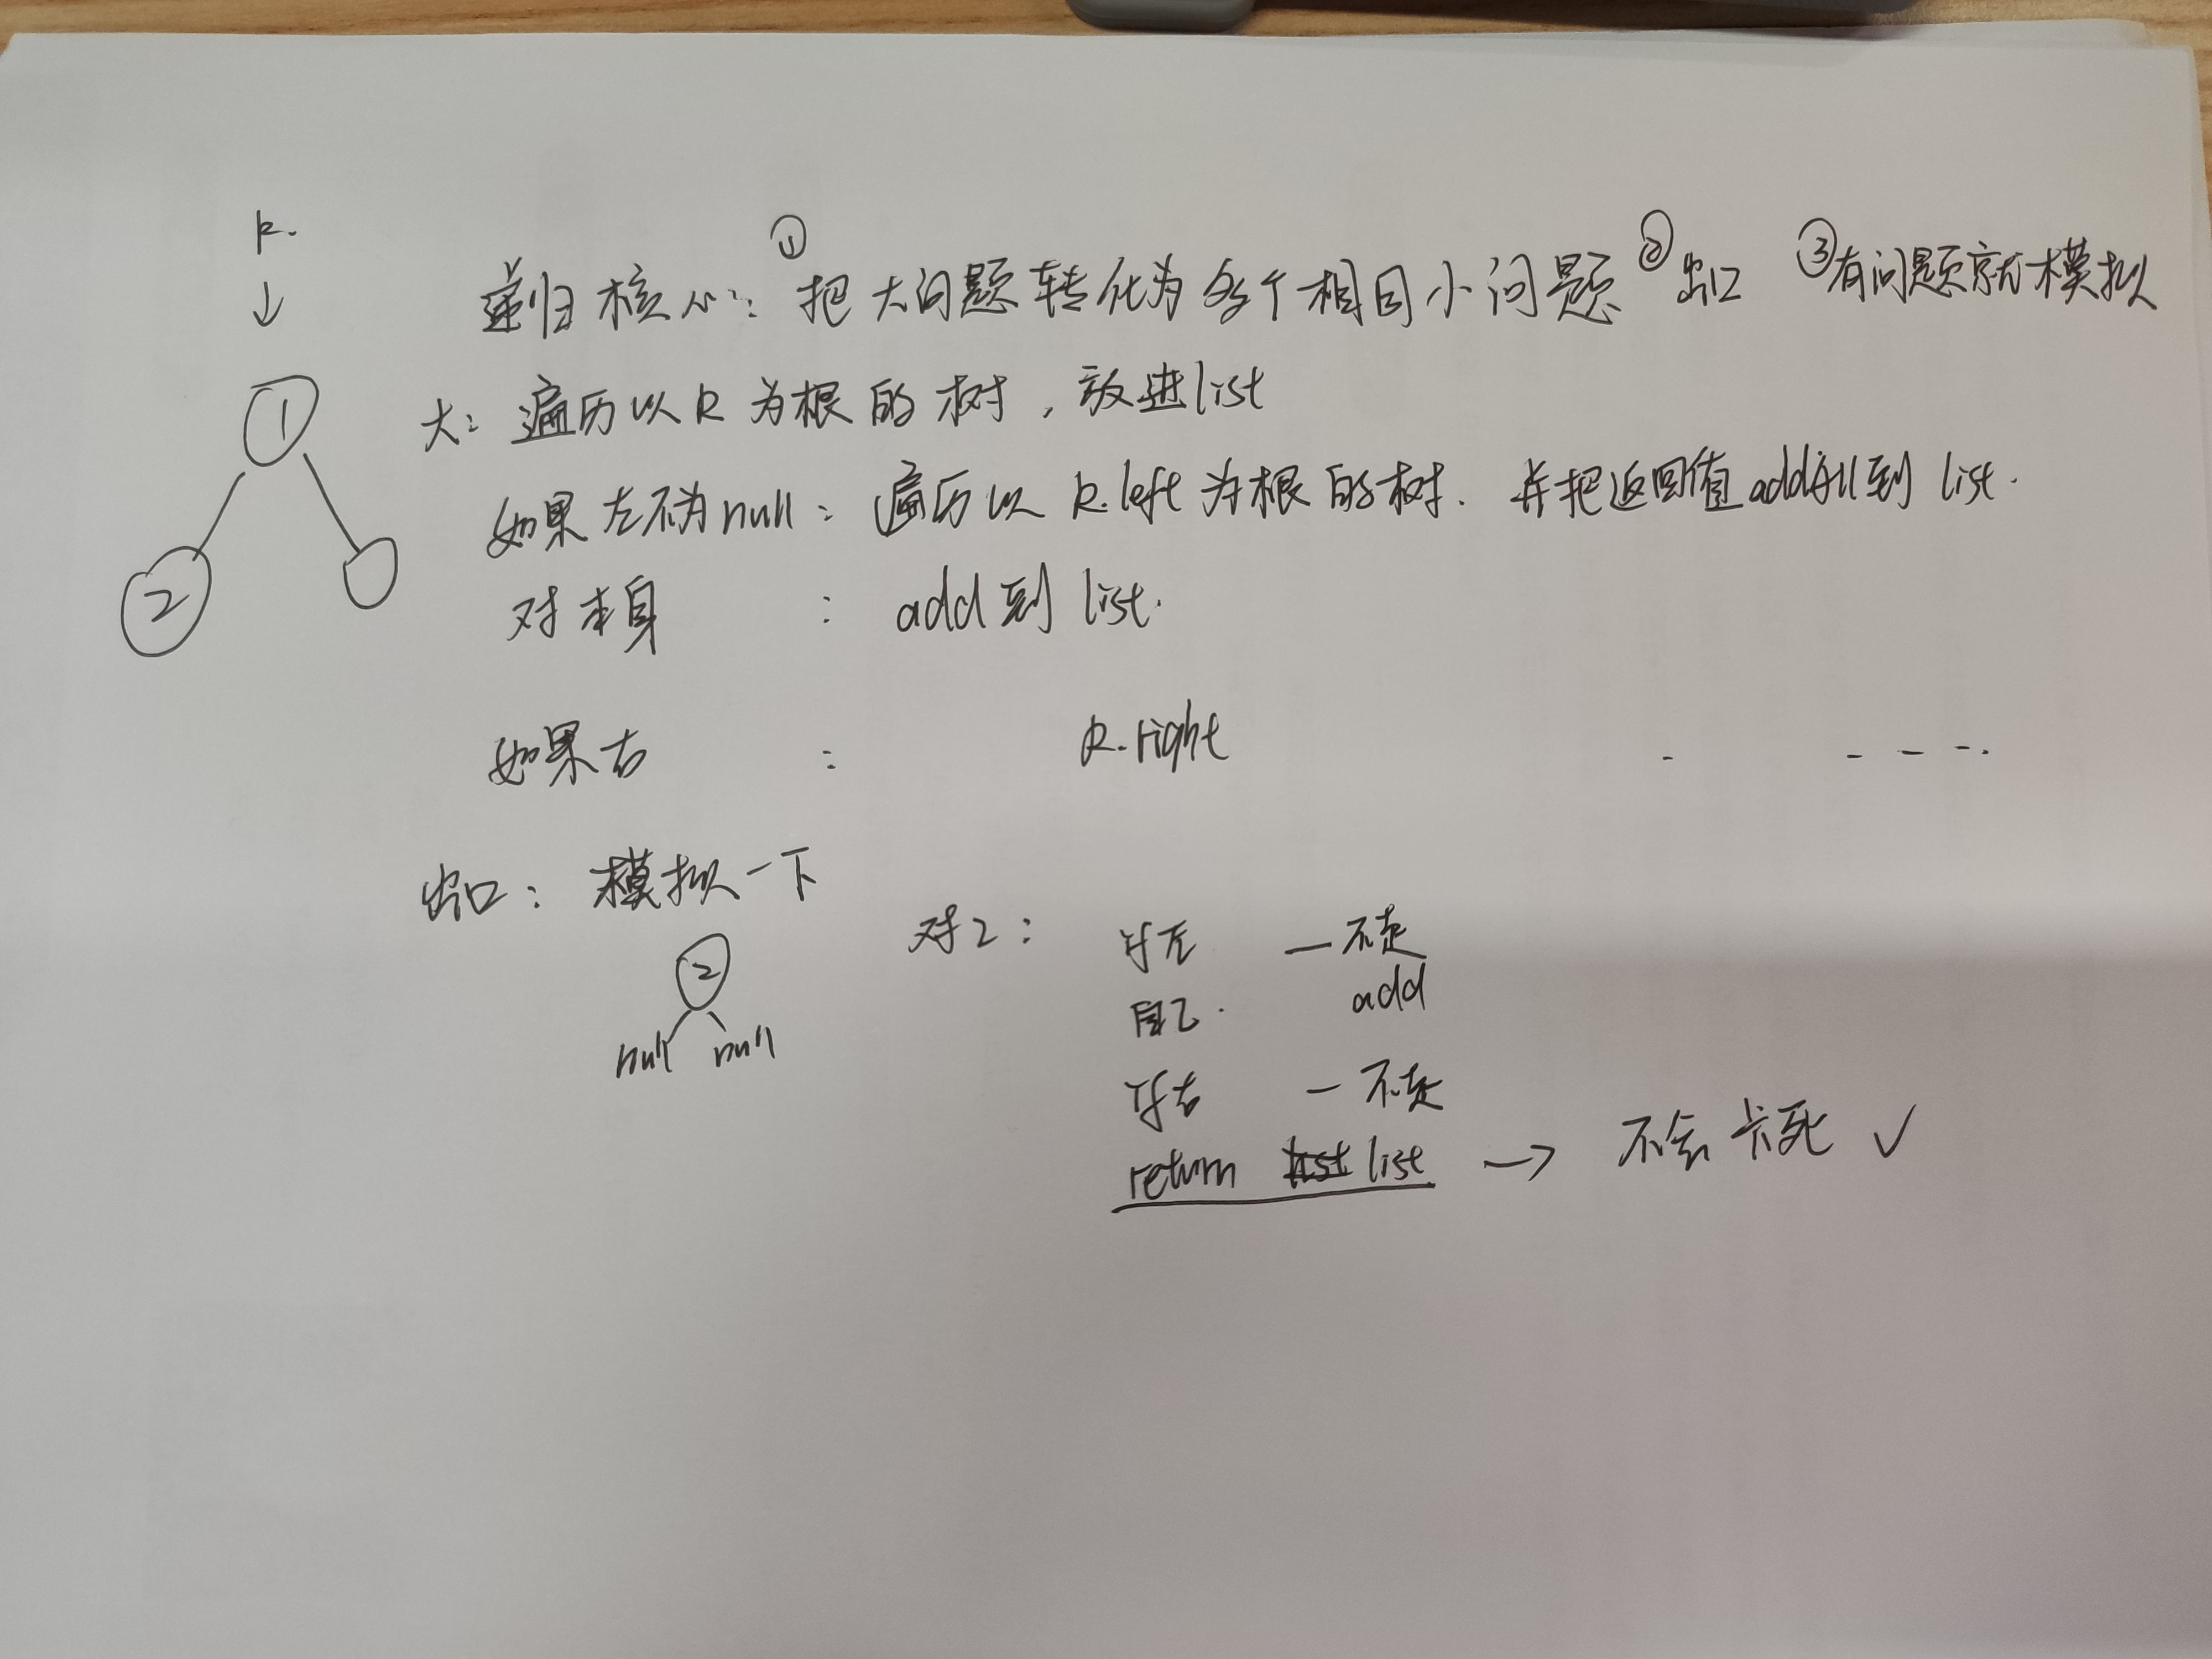 R.
↓
递归核心: ①把大问题转化为多个相同小问题 ②出口 ③有问题就模拟
1
2
大: 遍历以R为根的树, 放进list
如果左不为null: 遍历以R.left为根的树. 并把返回值addAll到 list.
对本身 : add到 list.
如果右 : R.right - - - -.
出口: 模拟一下
2
null null
对2: if左 — 不走
自己. add
if右 — 不走
return list → 不会卡死 ✓